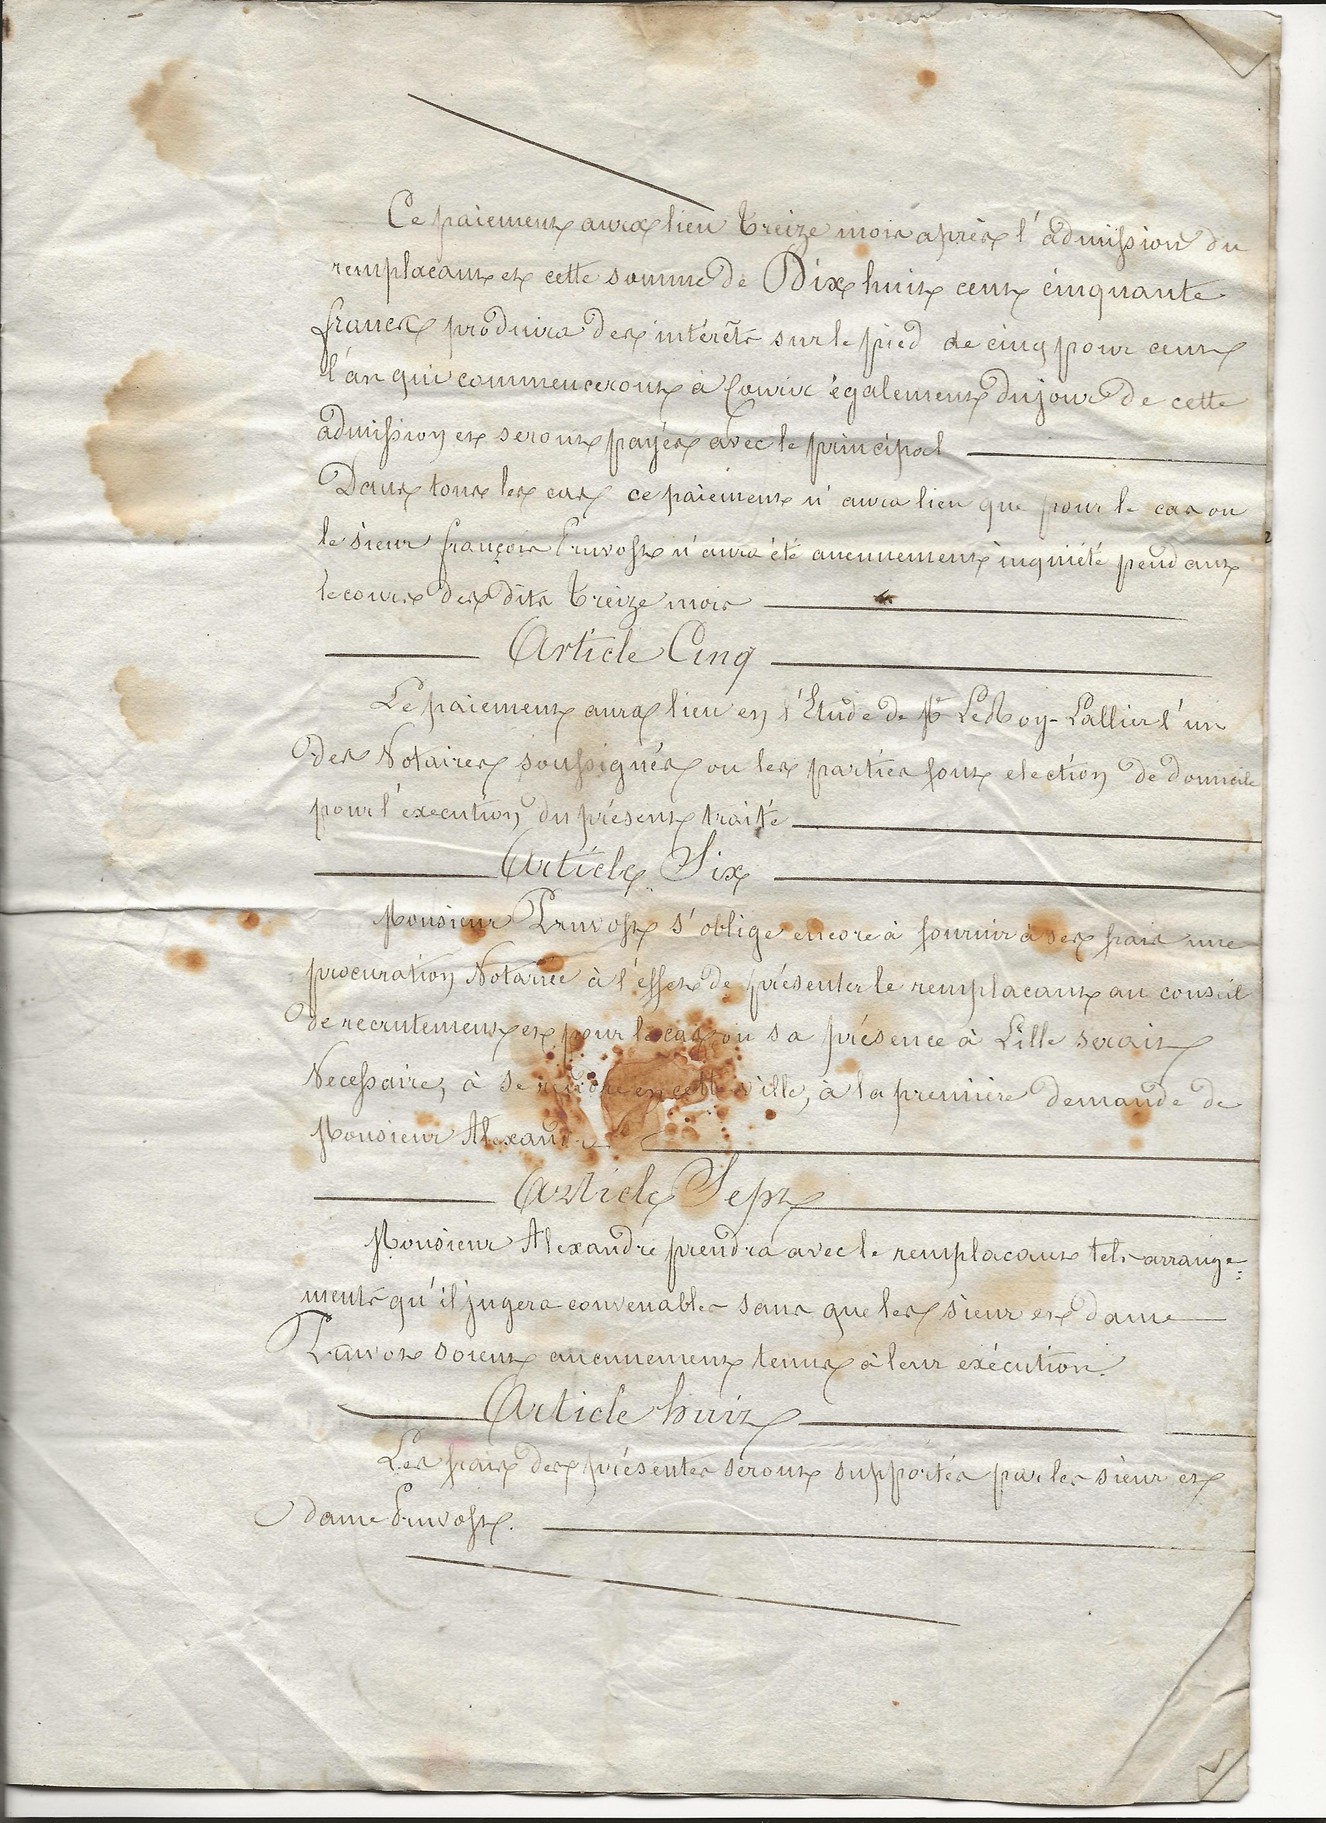 Ce paiement aura lieu treize mois après l'admission du
remplacant et cette somme de Dix huit cent cinquante
francs produira des intérêts sur le pied de cinq pour cent
l'an qui commenceront à Courir également du jour de cette
admission et seront payés avec le principal
Dans tous les cas ce paiement n'aura lieu que pour le cas ou
le sieur françois Pruvost n'aura été aucunement inquiété pendant
le cours des dits treize mois
Article Cinq
Le paiement aura lieu en l'Etude de Me LeRoy-Lallier l'un
des Notaires soussignés ou les parties font election de domicile
pour l'execution du présent traité
Article Six
Monsieur Pruvost s'oblige encore à fournir à ses frais une
procuration Notariée à l'effet de présenter le remplacant au conseil
de recrutement et pour le cas ou sa présence à Lille serait
Necessaire, à se rendre en cette ville, à la premiere demande de
Monsieur Alexandre
Article Sept
Monsieur Alexandre prendra avec le remplacant tels arrange=
ments qu'il jugera convenables sans que les sieur et dame
Pruvost soient aucunement tenus à leur exécution.
Article huit
Les frais des présentes seront supportés par les sieur et
dame Pruvost.